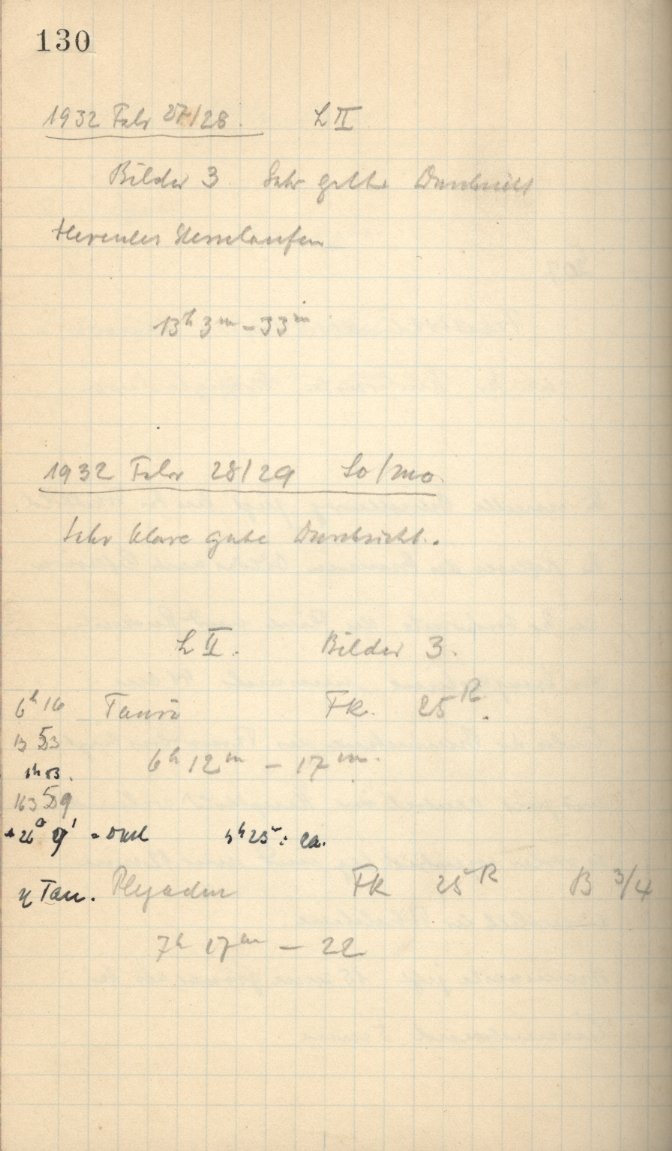 130
1932 Febr 27/28. L II
Bilder 3 Sehr gute Durchsicht
Hercules Sternhaufen
13h 3m - 33m
1932 Febr 28/29 So/Mo.
Sehr klare gute Durchsicht.
L II. Bilder 3.
6h 16 Tauri FK. 25R.
13 53
6h 12m - 17m.
1h 53.
163 59
+26° 9' = 5h25 ca.
η Tau. Plejaden FK 25R B 3/4
7h 17m - 22